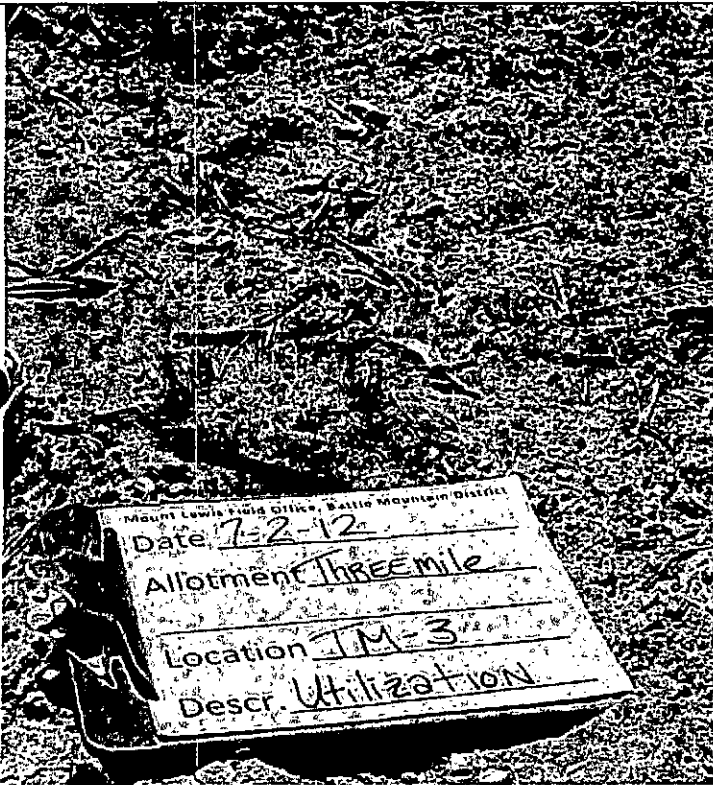 Mount Lewis Field Office, Battle Mountain District
Date 7-2-12
Allotment Threemile
Location TM-3
Descr. Utilization